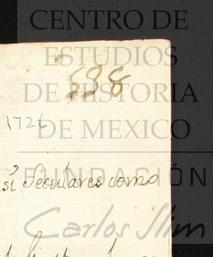 CENTRO DE
ESTUDIOS
DE HISTORIA
DE MEXICO
FUNDACIÓN
Carlos Slim
1726
si Seculares como